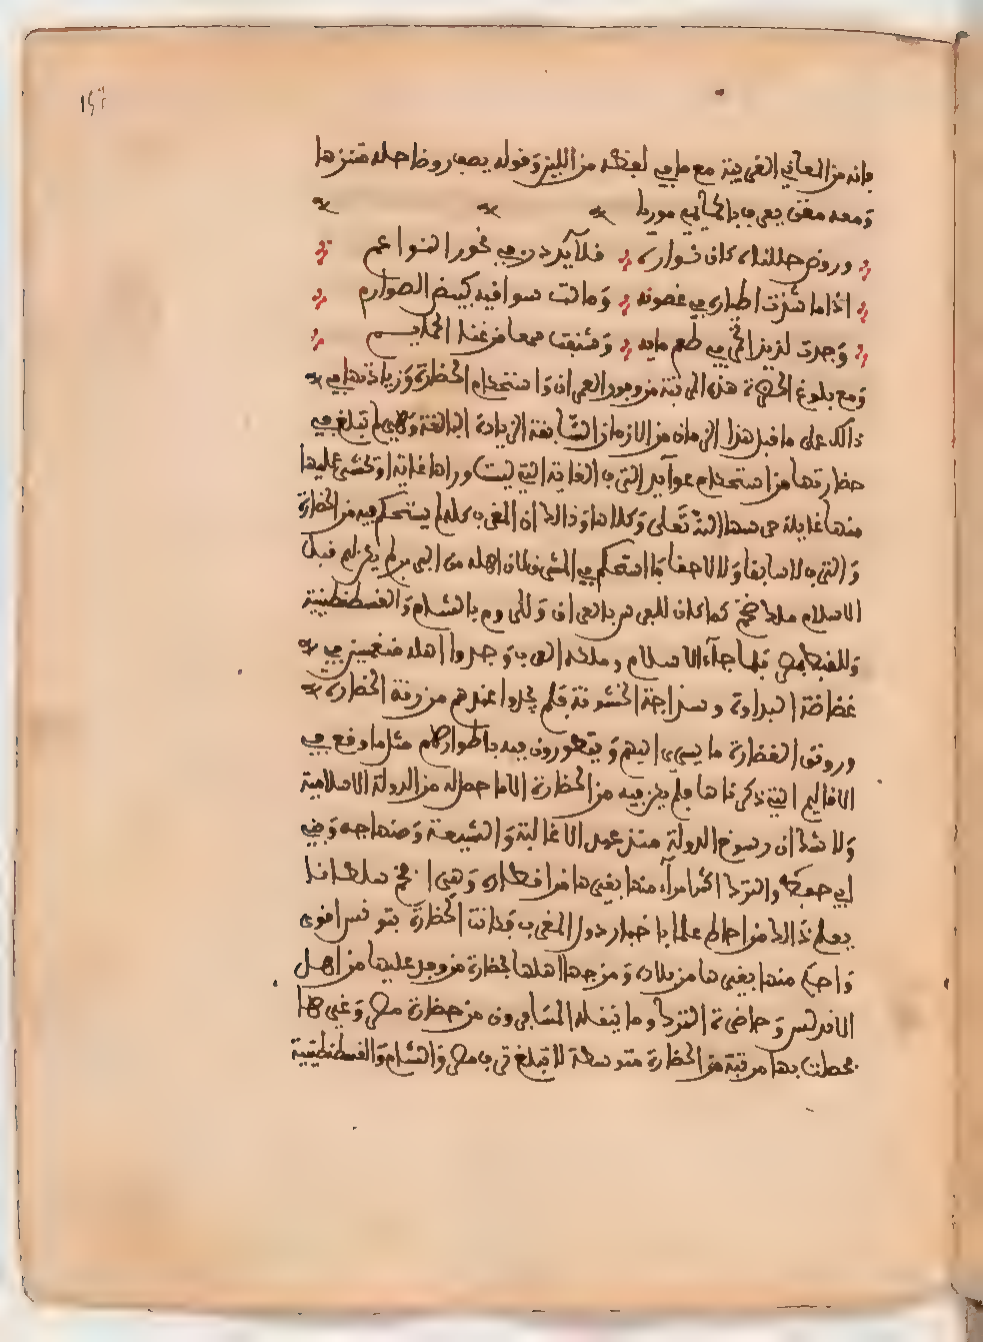 فإنه من المعاني الغريبة مع ما في لفظه من اللين وقوله يصف روضا حله متنزها
ومعه مغن يعرف
وروض حللناه كأن نواره فلا يرد من في نحور النواعم
إذا ما شدت أطياره في غصونه وماتت سواقيه كبيض الصوارم
وجدت لذيذ في طعم مايه
ومع بلوغ الحضرة هذه المرتبة من وجود العمران واستحكام الحظارة وزيادتها في
ذالك على ما قبل هذا الزمان من الازمان السابقة الزيادة البالغة وهي لم تبلغ في
حظارتها من استحكام عوايد الترف الغاية التي ليست وراها غاية او تخشى عليها
منها غايلة حرسها الله تعالى وكلاها وذالك ان المغرب كله لم يستحكم فيه من الحظارة
والترف لا سابقا ولا لاحقا ما استحكم في المشرق لان اهله من البربر لم يكن لهم قبل
الاسلام ملك ضخم كما كان للفرس بالعراق وللروم بالشام والقسطنطينية
وللقبط بمصر فلما جاء الاسلام وملكه العرب وجدوا اهله منغمسين في
غضاضة البداوة وسذاجة الخشونة فلم يجدوا عندهم من رقة الحظارة
ورونق الغضارة ما يسري اليهم ويتطورون فيه باطوارهم مثل ما وقع في
الاقاليم التي ذكرناها فلم يكن فيه من الحظارة الا ما حصل له من الدولة الاسلامية
ولا شك ان رسوخ الدولة منذ عهد الاغالبة والشيعة وصنهاجة وبني
ابي حفص والترك اكثر امرا منها بغيرها من اقطاره وهي اضخم سلطانا
يعلم ذالك من احاط علما باخبار دول المغرب فكانت الحظارة بتونس اقوى
واحكم منها بغيرها من بلاده ومزجها اهلها بحظارة من وفد عليها من اهل
الاندلس وحاضرة الترك وما ينقله المسافرون من حظارة مصر وغيرها
فحصلت بها مرتبة من الحظارة متوسطة لا تبلغ ترف مصر والشام والقسطنطينية